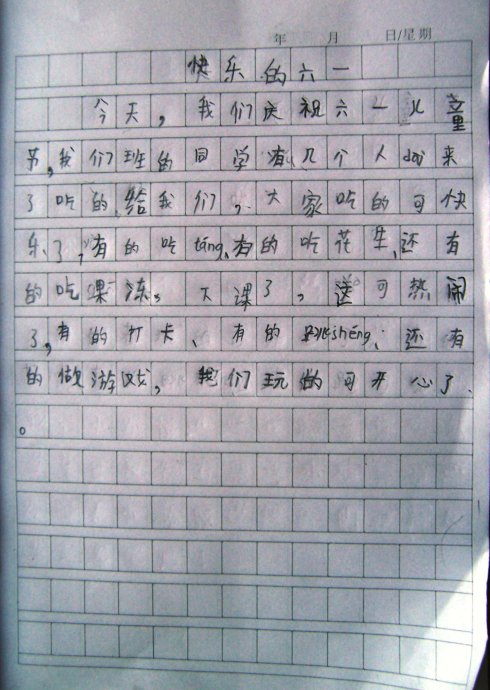 年 月 日/星期
快乐的六一
今天，我们庆祝六一儿童
节，我们班的同学有几个人dài来
了吃的给我们，大家吃的可快
乐了，有的吃táng、有的吃花生、还有
的吃果冻。下课了，送可热闹
了，有的打卡、有的跳shéng、还有
的做游戏，我们玩的可开心了
。